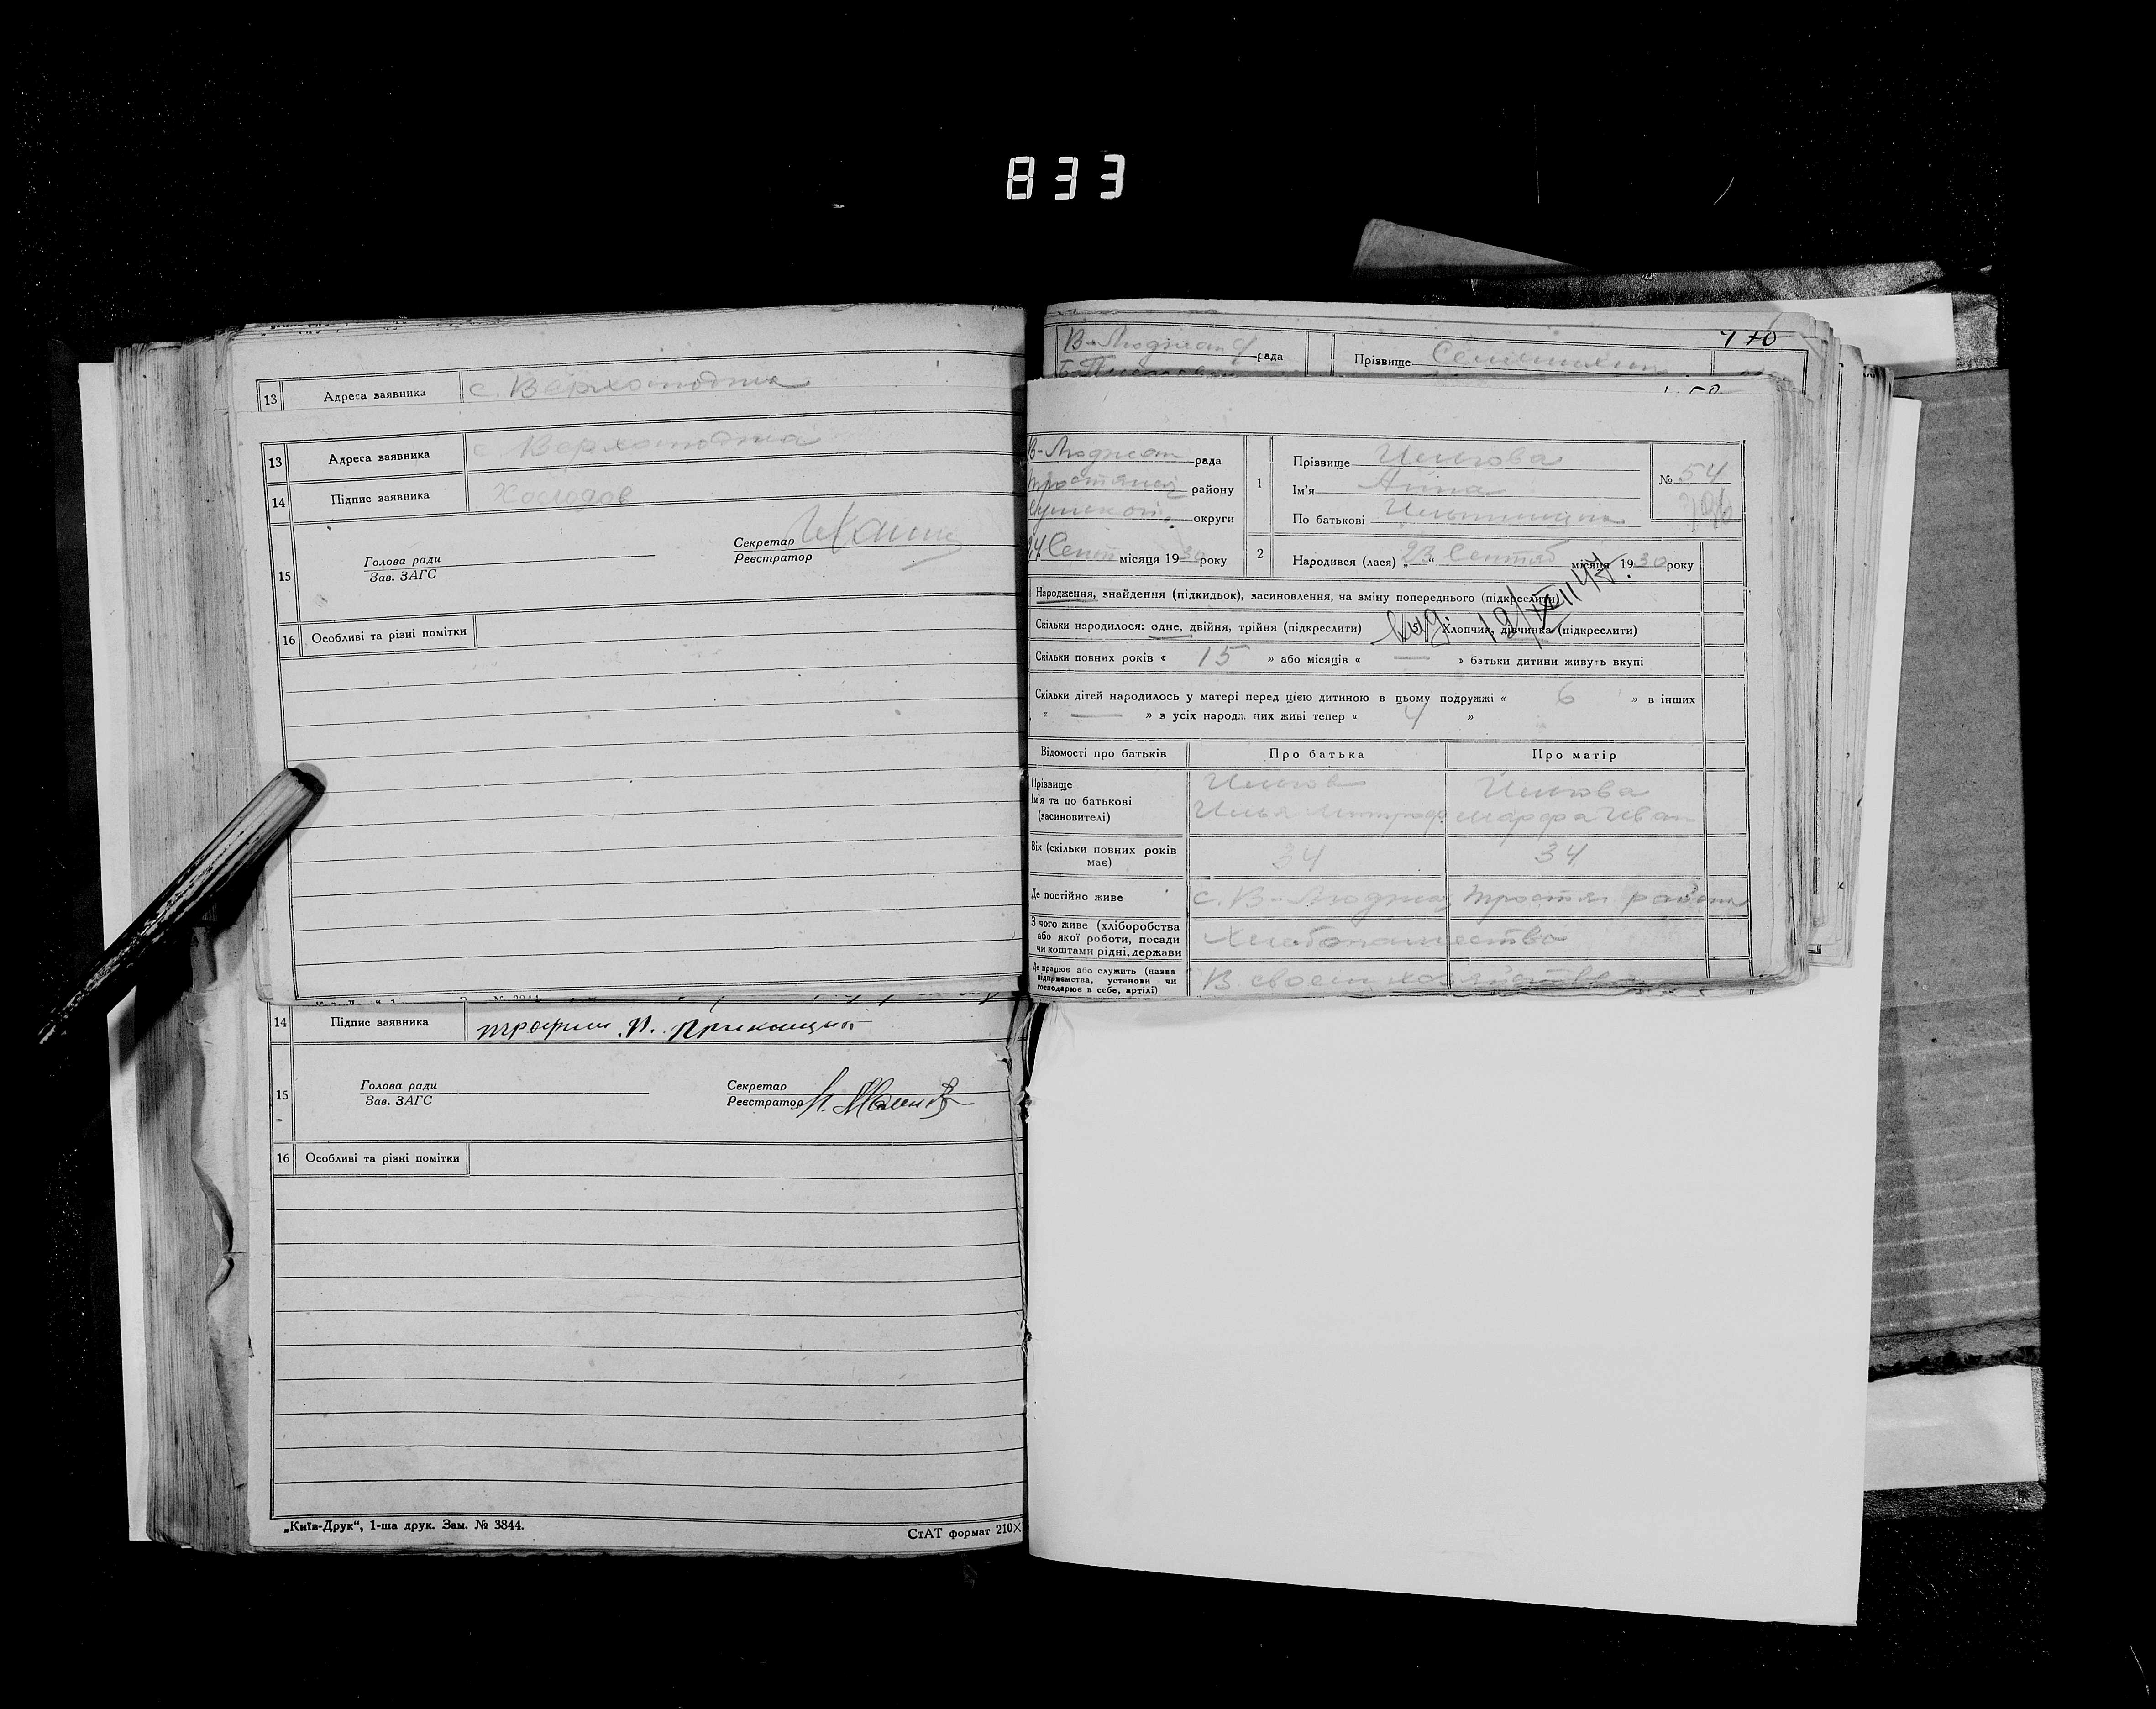 833
13 Адреса заявника с. Верхолюджа
13 Адреса заявника с Верхолюджа
14 Підпис заявника Холодов
15 Голова ради
Зав. ЗАГС
Секретар
Реєстратор
16 Особливі та різні помітки
14 Підпис заявника
15 Голова ради
Зав. ЗАГС
Секретар
Реєстратор
16 Особливі та різні помітки
„Київ-Друк“, 1-ша друк. Зам. № 3844.
СтАТ формат 210×
470
рада Прізвище
В-Люджан рада
району
округи
24 Сент місяця 1930 року
1 Прізвище
Ім'я Анна
По батькові
№ 54
2 Народився (лася) „23“ Сентяб місяця 1930 року
Народження, знайдення (підкидьок), засиновлення, на зміну попереднього (підкреслити)
Скільки народилося: одне, двійня, трійня (підкреслити) Хлопчик, дівчинка (підкреслити)
Скільки повних років « 15 » або місяців « — » батьки дитини живуть вкупі
Скільки дітей народилось у матері перед цією дитиною в цьому подружжі « 6 » в інших
« — » з усіх народж. них живі тепер « 4 »
Відомості про батьків Про батька Про матір
Прізвище
Ім'я та по батькові
(засиновителі)
Илья Митроф Марфа Иван
Вік (скільки повних років має) 34 34
Де постійно живе с. В-Люджа Тростян района
З чого живе (хліборобства або якої роботи, посади чи коштами рідні, держави Хлебопашество
Де працює або служить (назва підприємства, установи чи господарює в себе, артілі) В своем хозяйстве